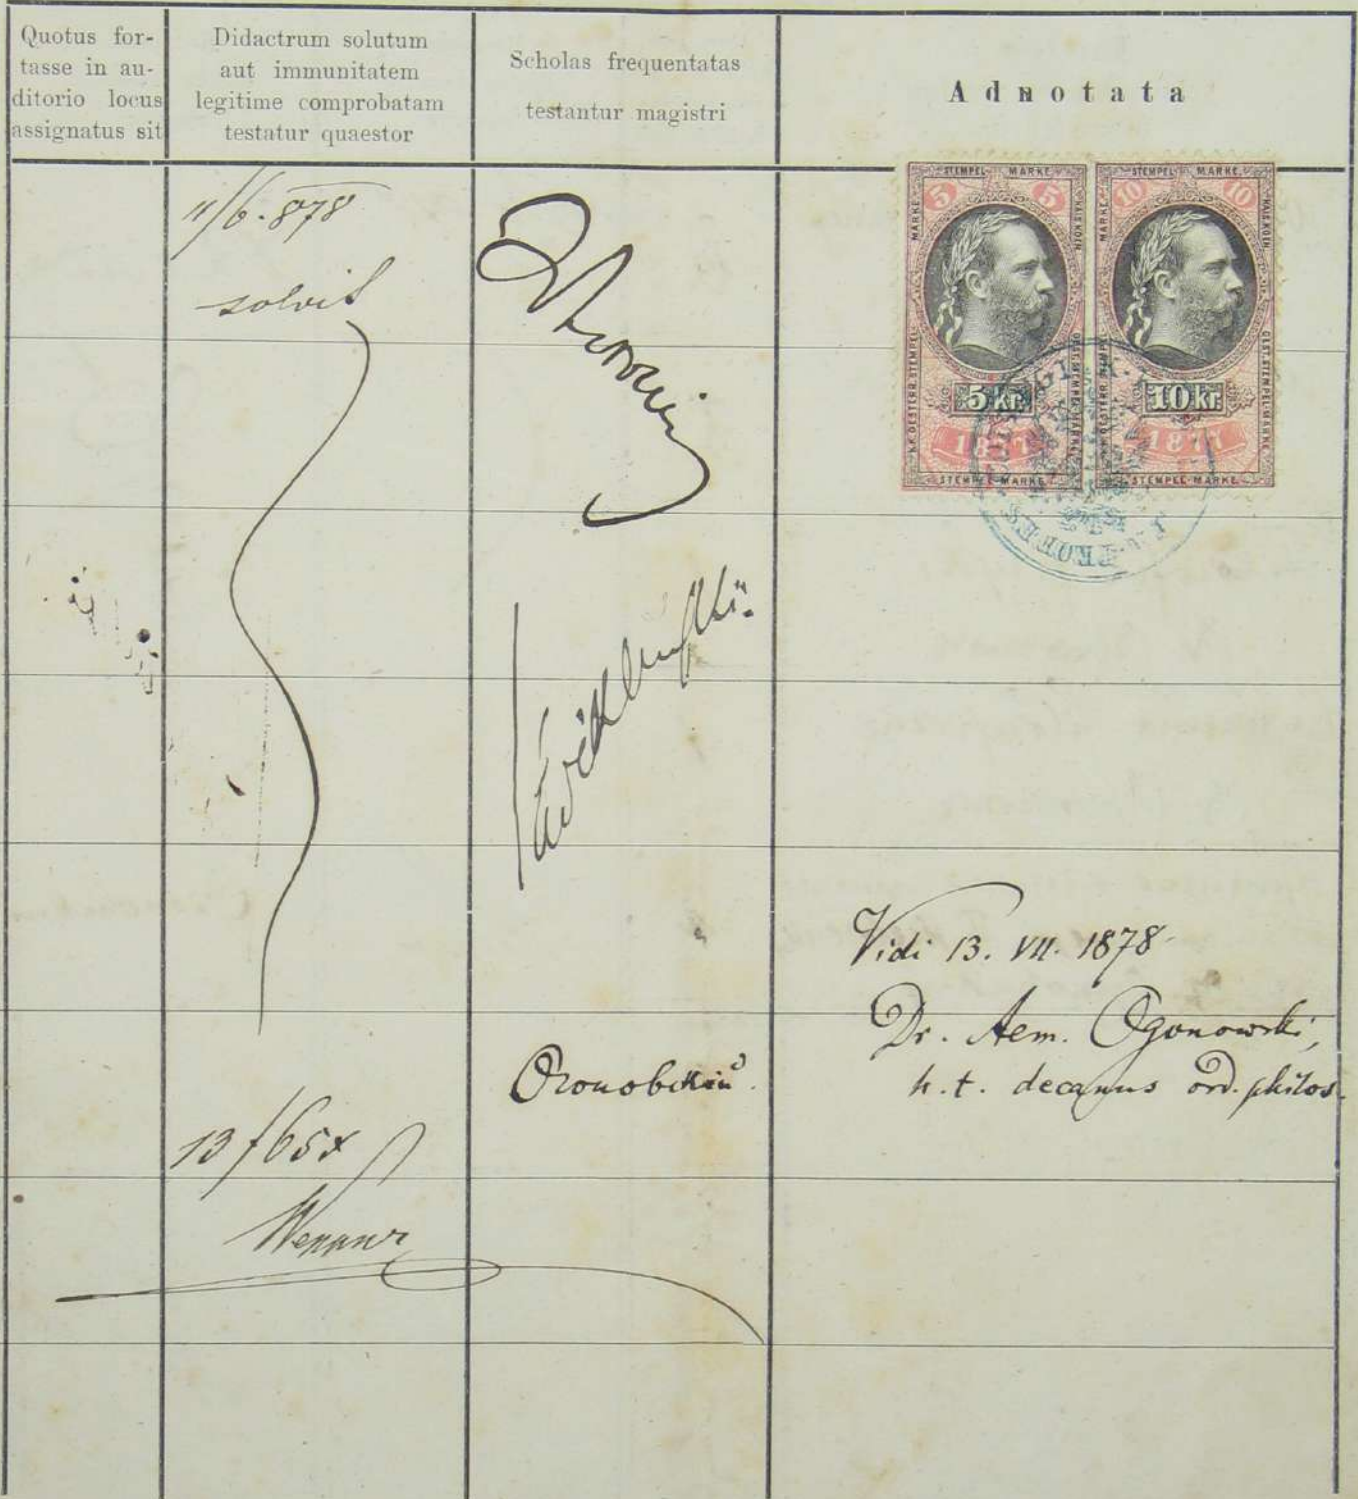 Quotus for-
tasse in au-
ditorio locus
assignatus sit
Didactrum solutum
aut immunitatem
legitime comprobatam
testatur quaestor
Scholas frequentatas
testantur magistri
Adnotata
11/6. 878
solvit
13 f 65 x
Огоновскій.
STEMPEL MARKE
5 5
5 kr.
1877
STEMPEL MARKE
STEMPEL MARKE
10 10
10 kr.
1877
STEMPEL MARKE
Vidi 13. VII. 1878
Dr. Aem. Ogonowski,
h. t. decanus ord. philos.